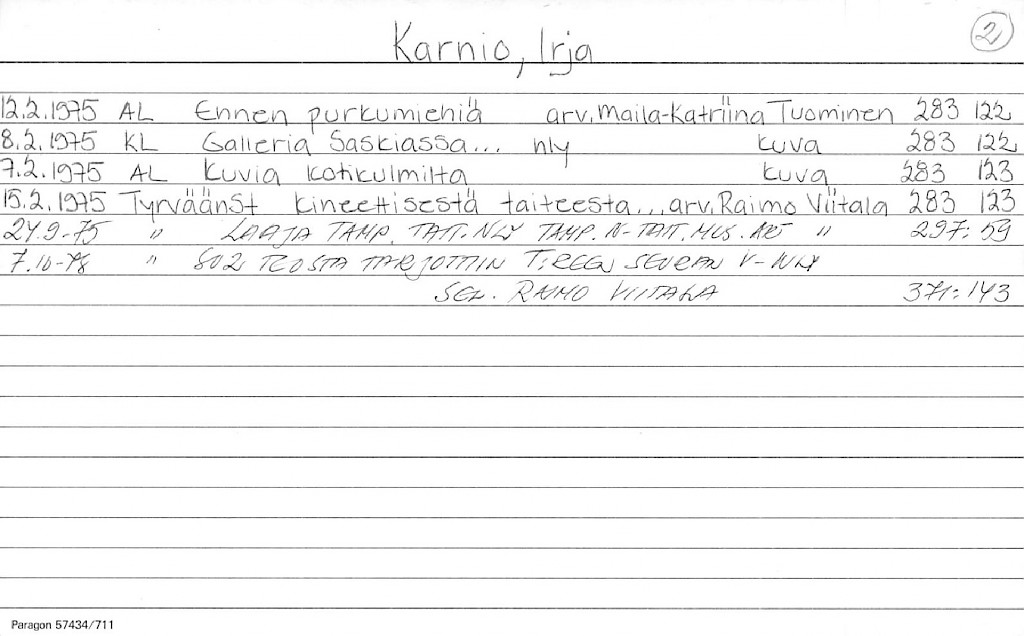 Karnio, Irja 2
12.2.1975 AL Ennen purkumiehiä arv. Maila-Katriina Tuominen 283 122
8.2.1975 KL Galleria Saskiassa... nly kuva 283 122
7.2.1975 AL Kuvia kotikulmilta kuva 283 123
15.2.1975 TyrväänSt kineettisestä taiteesta... arv. Raimo Viitala 283 123
24.9-75 " LAAJA TAMP. TAIT. NLY TAMP. N-TAIT. MUS. " 297: 59
7.10-78 " 802 TEOSTA TARJOTTIIN T:REEN SEURAN V-NLY
SEL. RAIMO VIITALA 371: 143
Paragon 57434/711